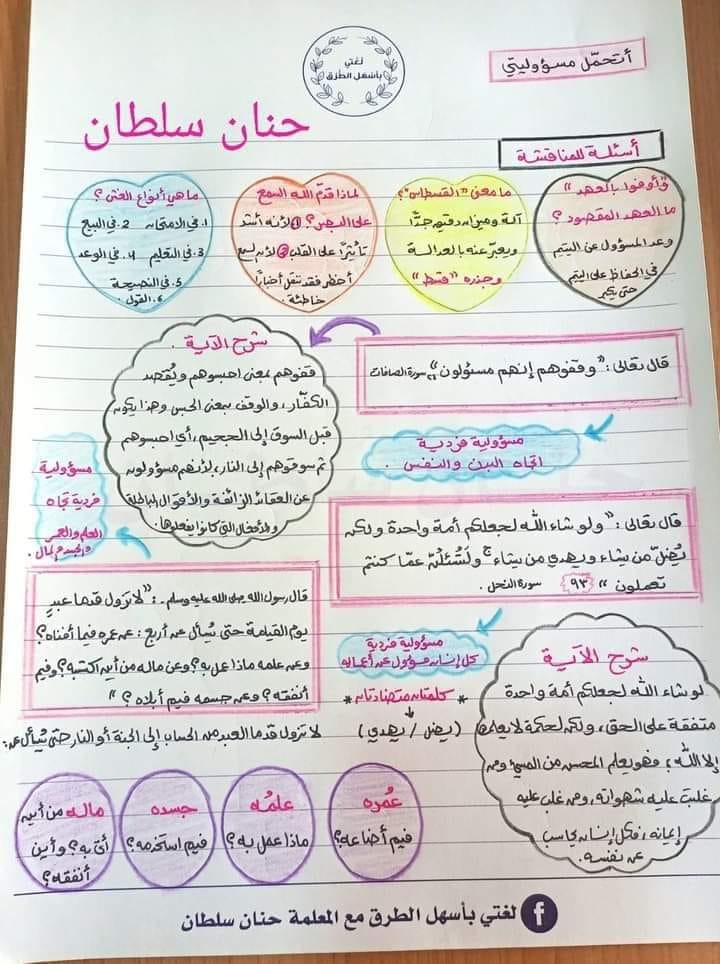 أتحمّل مسؤوليتي
لغتي
بأسهل الطرق
حنان سلطان
أسئلة للمناقشة
"وأوفوا بالعهد"
ما العهد المقصود؟
وعد المسؤول عن اليتيم
في الحفاظ على اليتيم
حتى يكبر
ما معنى "القسطاس"؟
آلة وميزان دقيق جدًّا
ويعبّر عنه بالعدالة
وجذره "قسط"
لماذا قدّم الله السمع
على البصر؟ ① لأنه أشد
تأثيرًا على القلب ② لأن السمع
أخطر فقد تنقل أخبارًا
خاطئة.
ما هي أنواع الغش؟
١. في الامتحان ٢. في البيع
٣. في التعليم ٤. في الوعد
٥. في النصيحة
٦. القول.
قال تعالى: "وقفوهم إنهم مسئولون" سورة الصافات
شرح الآية.
قفوهم بمعنى احبسوهم ويُقصد
الكفّار، والوقف بمعنى الحبس وهذا يكون
قبل السوق إلى الجحيم، أي احبسوهم
ثم سوقوهم إلى النار، لأنهم مسؤولون
عن العقائد الزائفة والأقوال الباطلة
والأفعال التي كانوا يفعلوها.
مسؤولية فردية
اتجاه البدن والنفس.
قال تعالى: "ولو شاء الله لجعلكم أمة واحدة ولكن
يُضلّ من يشاء ويهدي من يشاء ولَتُسْئَلُنّ عمّا كنتم
تعملون" ٩٣ سورة النحل.
مسؤولية
فردية تجاه
العلم والعمر
والجسم والمال.
قال رسول الله صلى الله عليه وسلم: "لا تزول قدما عبدٍ
يوم القيامة حتى يُسأل عن أربع: عن عمره فيما أفناه؟
وعن علمه ماذا عمل به؟ وعن ماله من أين اكتسبه؟ وفيم
أنفقه؟ وعن جسمه فيم أبلاه؟"
مسؤولية فردية
كل إنسان مسؤول عن أعماله
* كلمتان متضادتان *
(يضل / يهدي)
شرح الآية
لو شاء الله لجعلكم أمة واحدة
متفقة على الحق، ولكن لحكمة لا يعلمها
إلا الله، فهو يعلم المحسن من المسيء ومن
غلبت عليه شهواته، ومن غلب عليه
إيمانه، فكل إنسان يحاسب
عن نفسه.
لا تزول قدما العبد من الحساب إلى الجنة أو النار حتى يُسأل عن:
عُمُره
فيم أضاعه؟
علمُه
ماذا عمل به؟
جسده
فيم استخدمه؟
ماله من أين
أتى به؟ وأين
أنفقه؟
لغتي بأسهل الطرق مع المعلمة حنان سلطان